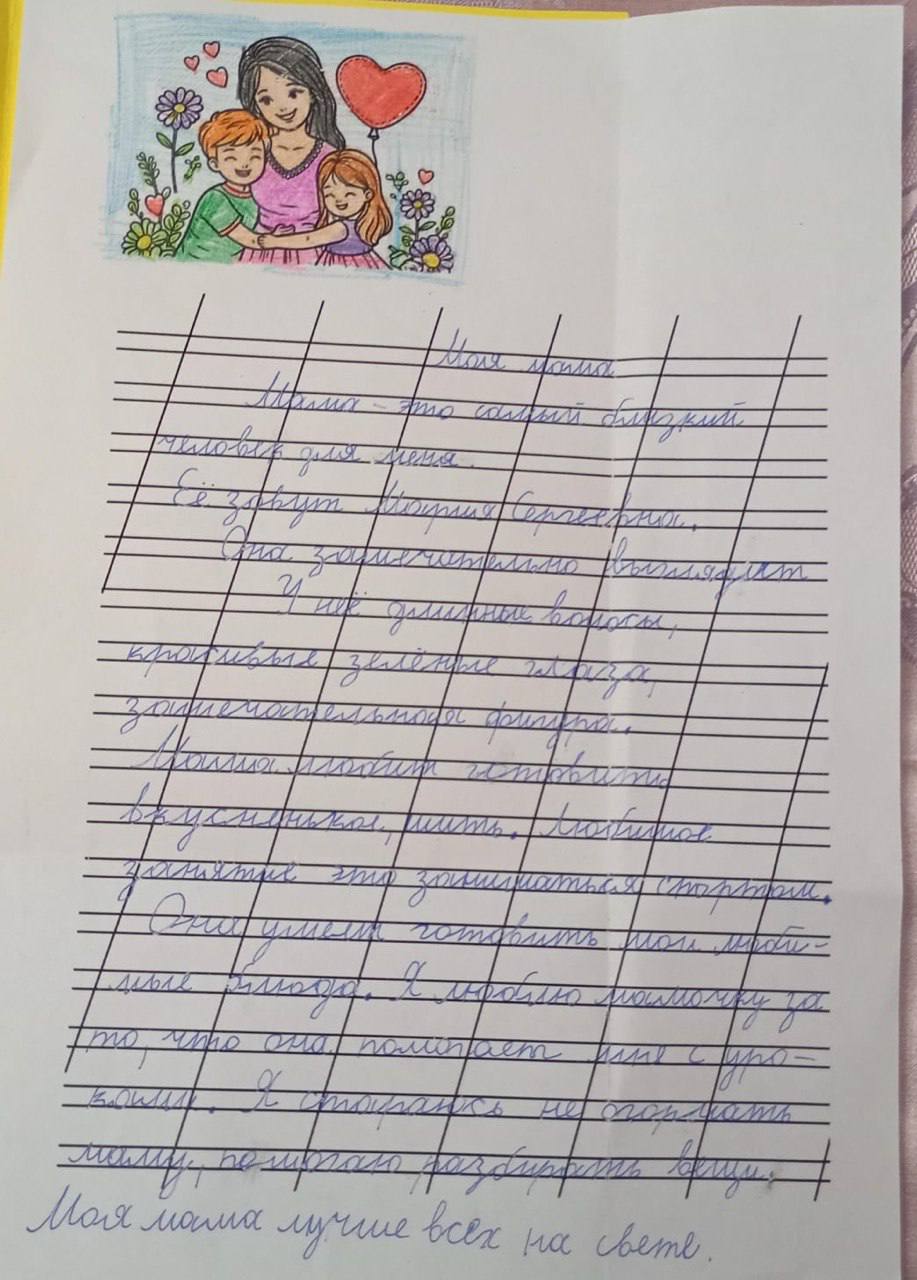 Моя мама
Мама - это самый близкий
человек для меня.
Её зовут Мария Сергеевна.
Она замечательно выглядит
У неё длинные волосы,
красивые зелёные глаза,
замечательная фигура.
Мама любит готовить
вкусненькое, шить. Любимое
занятие это заниматься спортом.
Она умеет готовить мои люби-
мые блюда. Я люблю мамочку за
то, что она помогает мне с уро-
ками. Я стараюсь не огорчать
маму, помогаю разбирать вещи.
Моя мама лучше всех на свете.